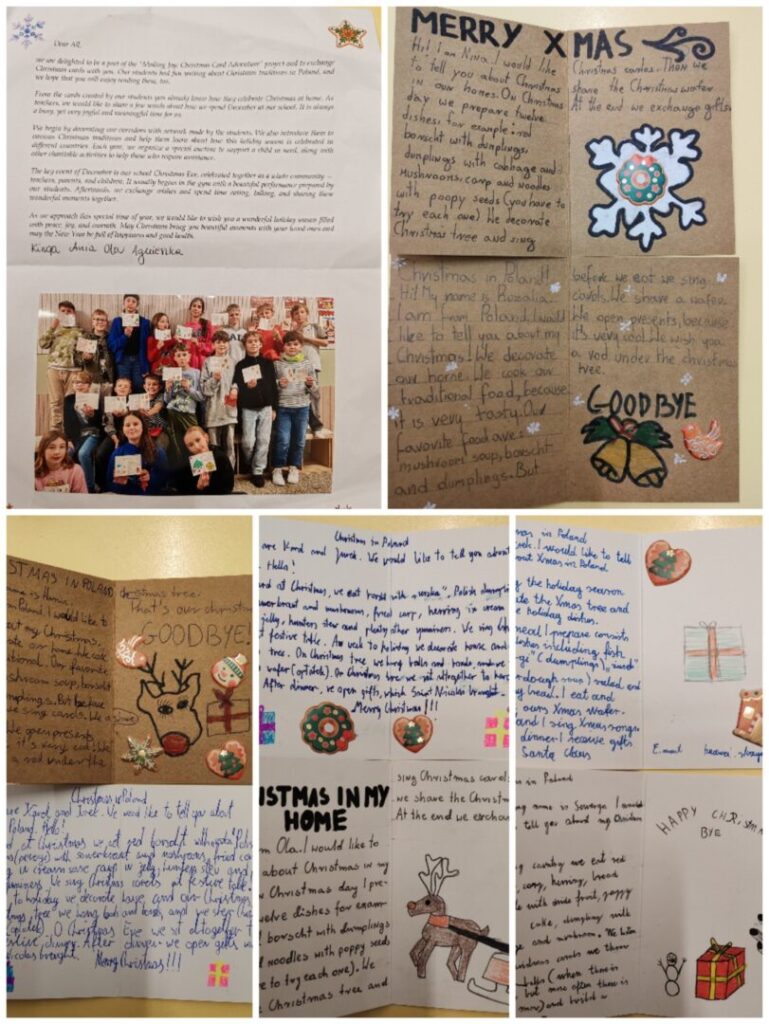 Dear All,
we are delighted to be a part of the "Mailing Joy: Christmas Card Adventure" project and to exchange
Christmas cards with you. Our students had fun writing about Christmas traditions in Poland, and
we hope that you will enjoy reading them.
From the cards created by our students you already know how they celebrate Christmas at home. As
teachers, we would like to share a few words about how we spend December at our school. It is always
a busy, yet very joyful and meaningful time for us.
We begin by decorating our corridors with artwork made by the students. We also introduce them to
various Christmas traditions and help them learn about how this holiday season is celebrated in
different countries. Each year, we organize a special auction to support a child in need, along with
other charitable activities to help those who require assistance.
The key event of December is our school Christmas Eve, celebrated together as a whole community –
teachers, parents, and children. It usually begins in the gym with a beautiful performance prepared by
our students. Afterwards, we exchange wishes and spend time eating, talking, and sharing these
wonderful moments together.
As we approach this special time of year, we would like to wish you a wonderful holiday season filled
with peace, joy, and warmth. May Christmas bring you beautiful moments with your loved ones and
may the New Year be full of happiness and good health.
Kinga Ania Ola Agnieszka
MERRY XMAS
Hi! I am Nina. I would like
to tell you about Christmas
in our homes. On Christmas
day we prepare twelve
dishes, for example: red
borscht with dumplings,
dumplings with cabbage and
mushrooms, carp and noodles
with poppy seeds (you have to
try each one). We decorate
Christmas tree and sing
Christmas carols. Then we
share the Christmas wafer.
At the end we exchange gifts.
Christmas in Poland!
Hi! My name is Rozalia.
I am from Poland. I would
like to tell you about my
Christmas! We decorate
our home. We cook our
traditional food, because
it is very tasty. Our
favorite food are:
mushroom soup, borscht
and dumplings. But
before we eat we sing
carols. We share a wafer.
We open presents, because
it's very cool. We wish you
a rod under the christmas
tree.
GOODBYE
STMAS IN POLAND
name is
m Poland. I would like to
out my Christmas.
ate our home. We cook
ditional. Our favorite
shroom soup, borscht
mplings. But before
we sing carols. We
We open presents
it's very cool! We
a rod under the
christmas tree.
That's our christm
GOODBYE!
Christmas in Poland
are Karol and Jurek. We would like to tell you about
Poland. Hello!
at Christmas we eat red borscht with
with sauerkraut and mushrooms, fried
in cream, carp in jelly, hunters stew and
We sing Christmas carols at festive table.
to holiday we decorate house and our Christmas
tree we hang balls and
O Christmas Eve we sit altogether to
After dinner we open gifts
brought. Merry Christmas!!!
Christmas in Poland
are Karol and Jurek. We would like to tell you about
Hello!
at Christmas, we eat borscht with Polish
sauerkraut and mushrooms, fried carp, herring in cream
jelly, hunters stew and plenty other yummies. We sing
festive table. As well to holiday we decorate house and
tree. On Christmas tree we hang balls and
wafer (opłatek). On Christmas Eve we sit altogether to
After dinner, we open gifts, which Saint Nicolas brought
Merry Christmas!!!
ISTMAS IN MY
HOME
m Ola. I would like to
about Christmas in my
Christmas day I pre-
welve dishes for exam-
borscht with dumplings
nd noodles with poppy seeds
e to try each one). We
Christmas tree and
sing Christmas carol
we share the Christm
At the end we exchan
mas in Poland
I would like to tell
out Xmas in Poland
g the holiday season
te the Xmas tree and
e holiday dishes.
meal I prepare consists
ishes including fish
(dumplings),
salad and
bread. I eat and
our Xmas wafer.
and I sing Xmas songs
dinner I receive gifts
Santa Claus
E.mail
s in Poland
my name is I would
tell you about my Christmas
we eat red
carp, herring, bread
with dried fruit, poppy
cake, dumpling with
and mushroom. We
carols we
(when there is
but more often there is
and build a
HAPPY CHRISTM
BYE